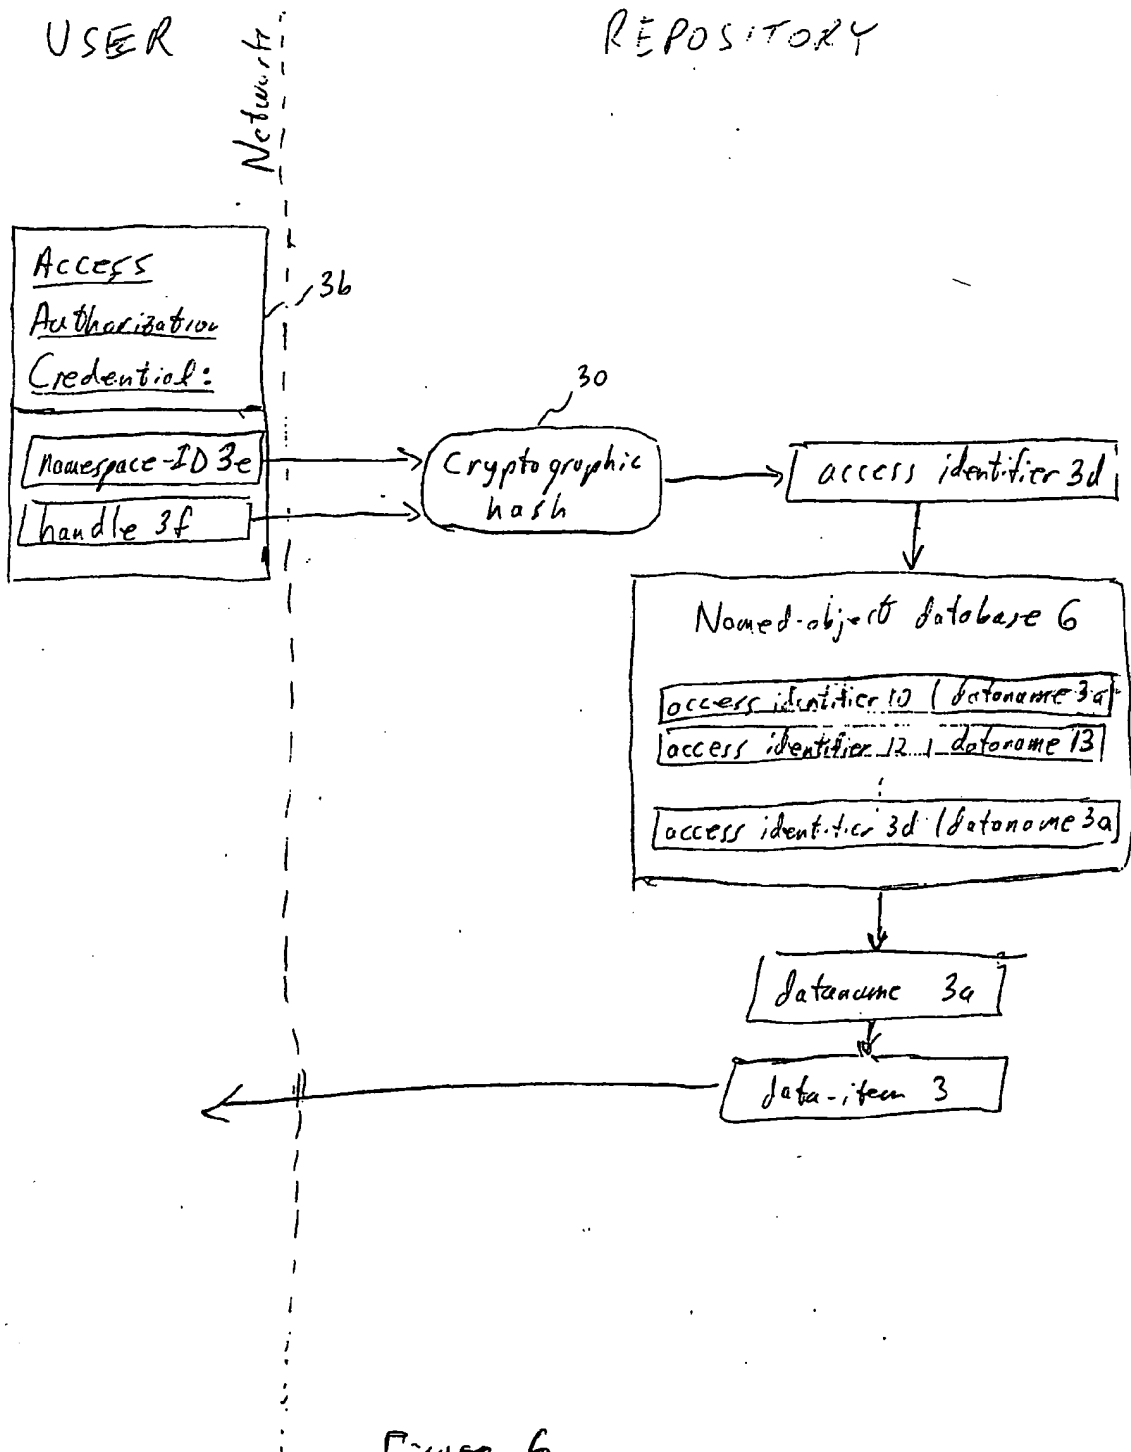 USER
Network
REPOSITORY
Access
Authorization
Credential:
3b
namespace-ID 3e
handle 3f
30
Cryptographic
hash
access identifier 3d
Named-object database 6
access identifier 10 | dataname 3a
access identifier 12 | dataname 13
access identifier 3d | dataname 3a
dataname 3a
data-item 3
Figure 6